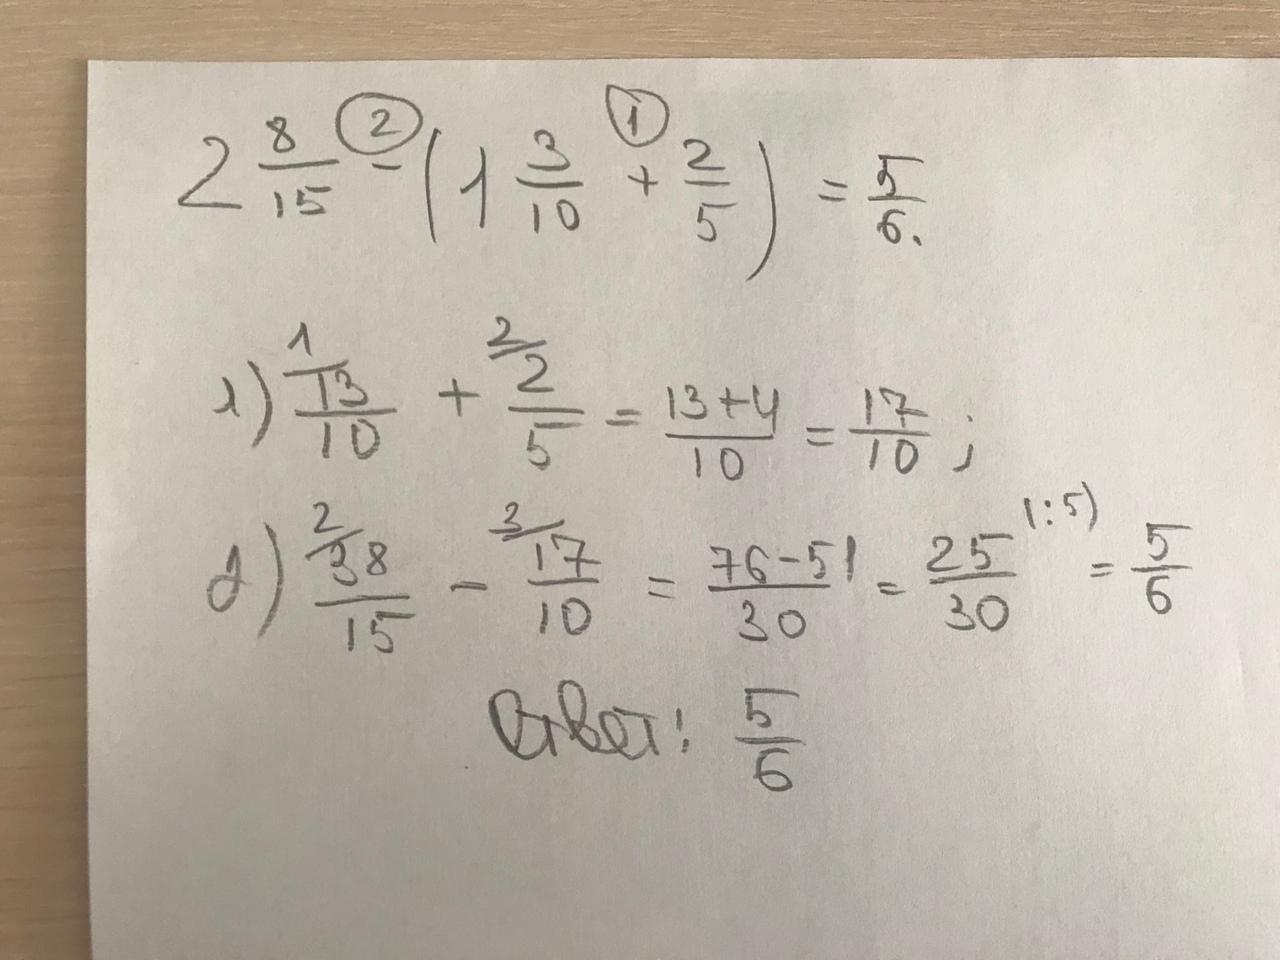 2 8/15 ② - (1 3/10 ① + 2/5) = 5/6.
1) 1/ 13/10 + 2/ 2/5 = 13+4/10 = 17/10 ;
2) 2/ 38/15 - 3/ 17/10 = 76-51/30 = 25/30 (:5) = 5/6
Ответ: 5/6